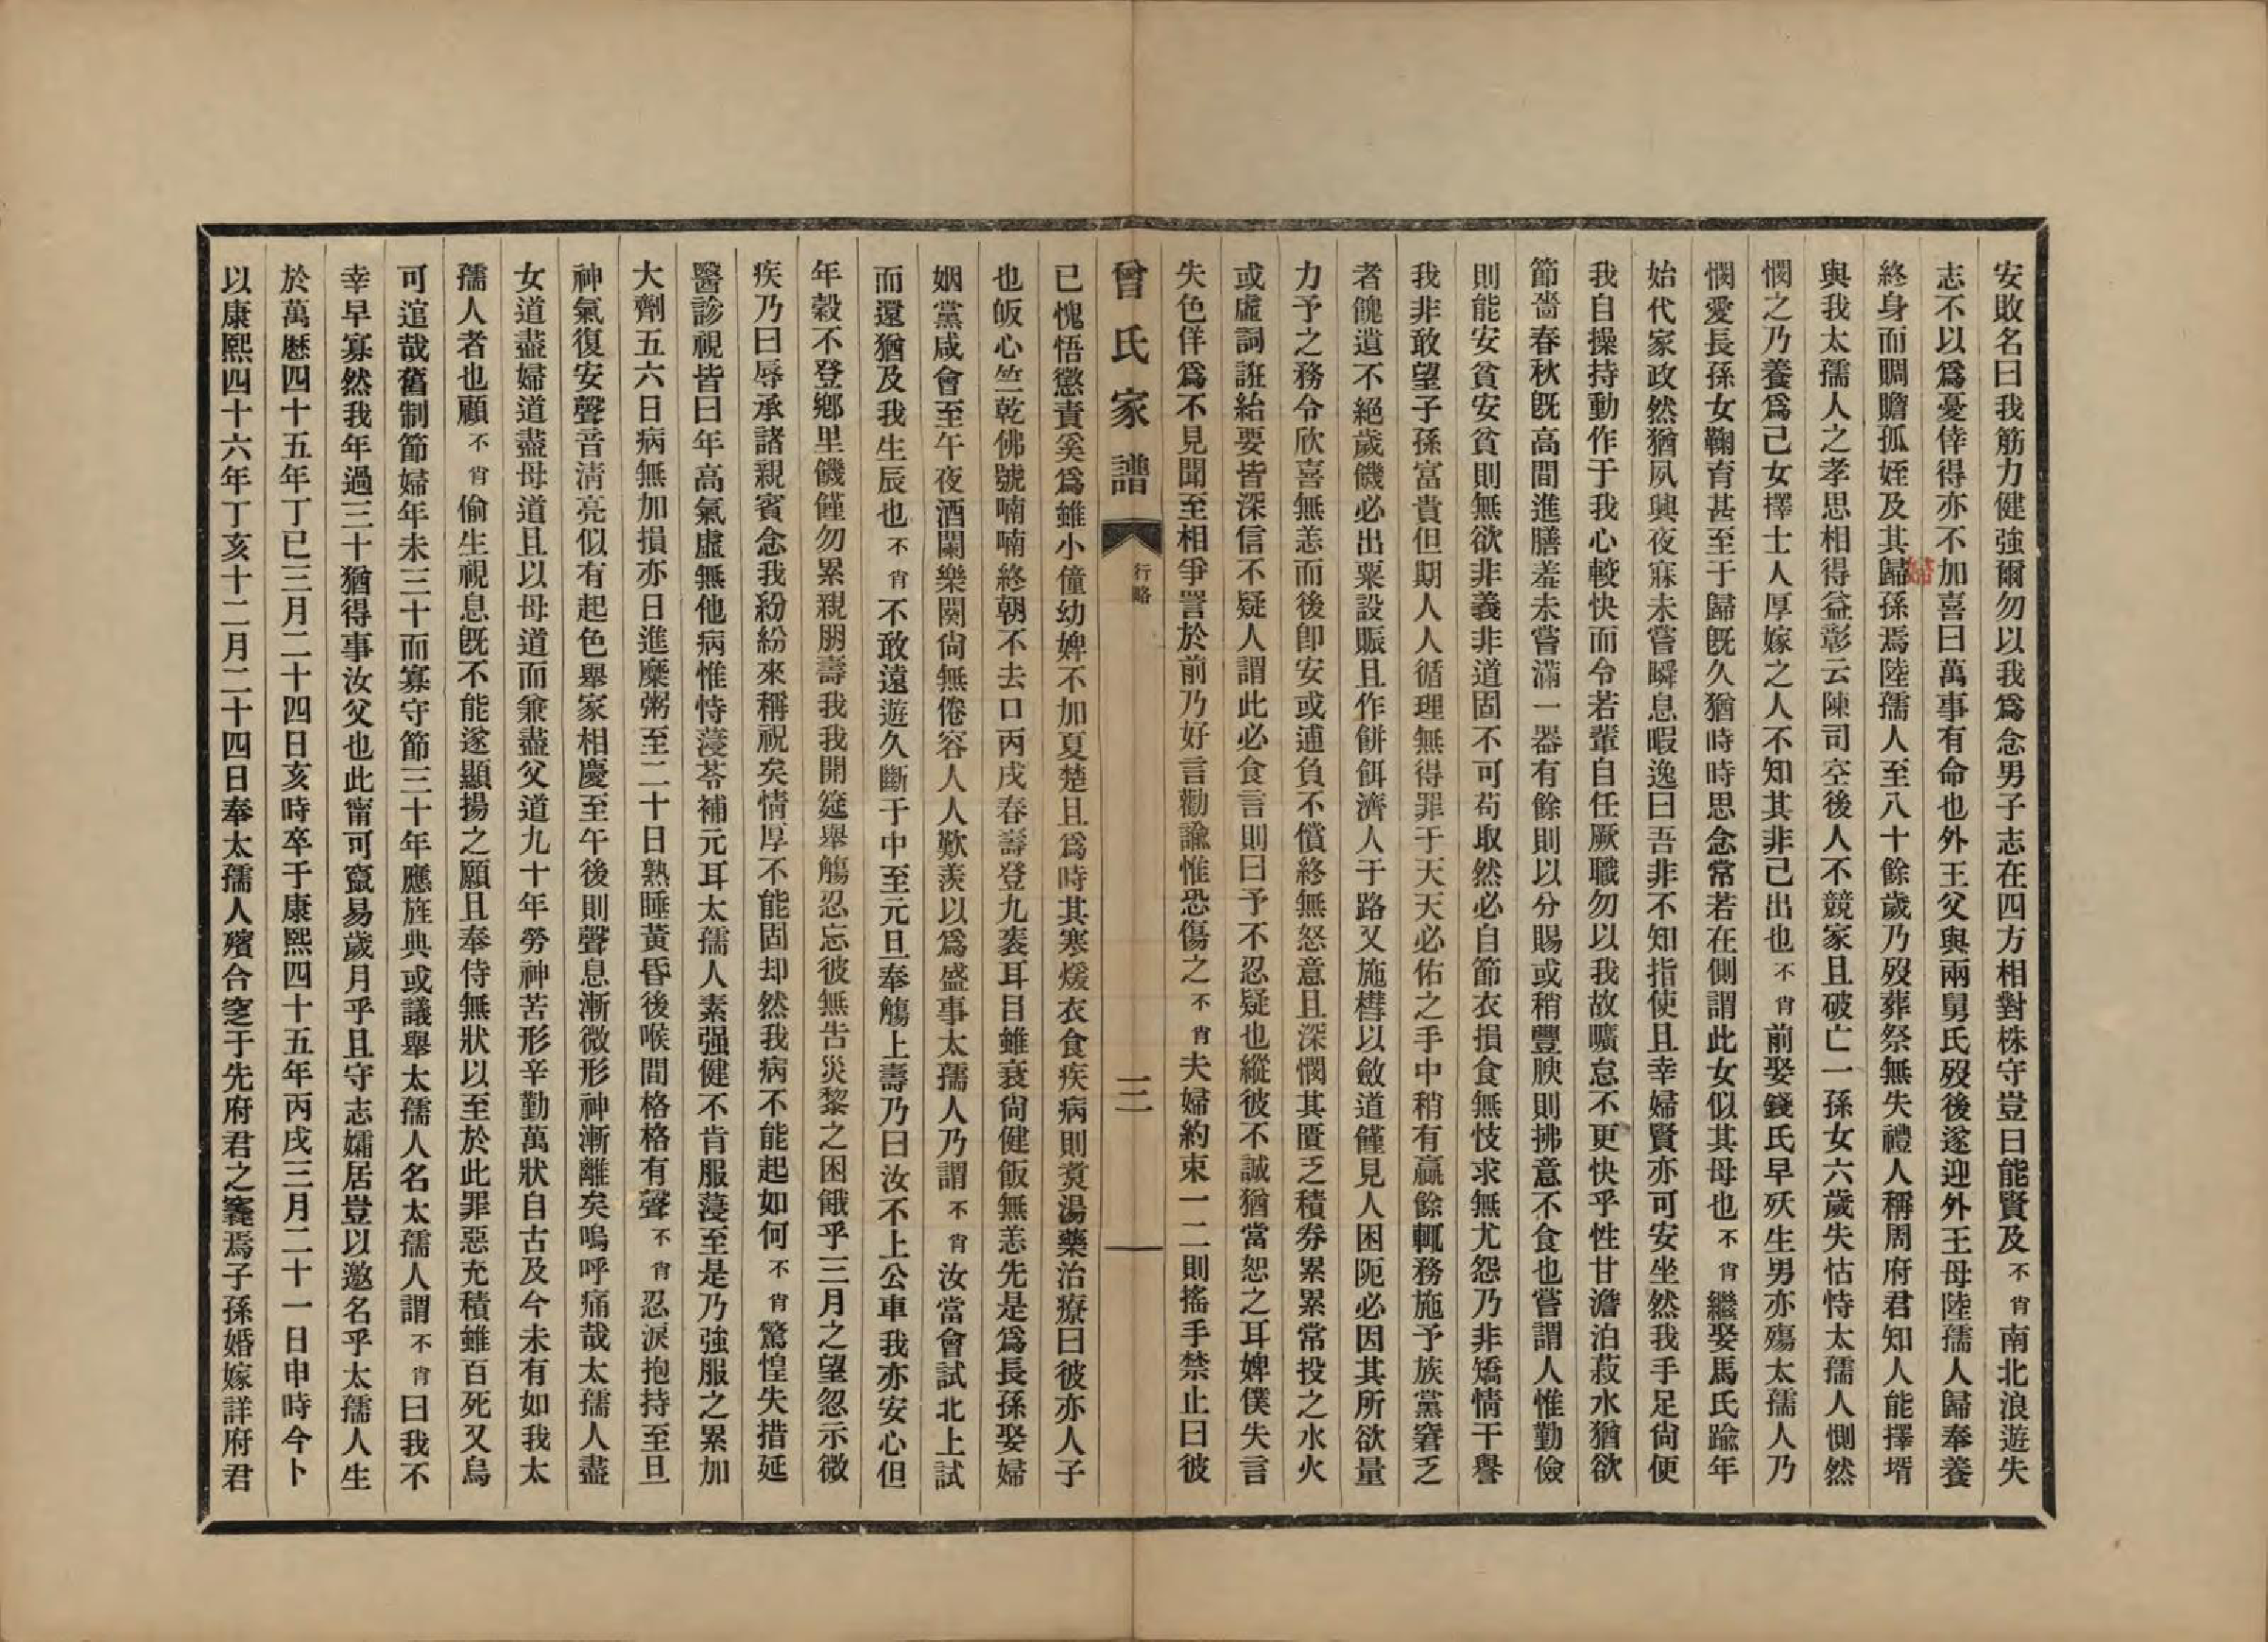 安敗名曰我筋力健強爾勿以我爲念男子志在四方相對株守豈曰能賢及不肖南北浪遊失
志不以爲憂倖得亦不加喜曰萬事有命也外王父與兩舅氏歿後遂迎外王母陸孺人歸奉養
終身而賙贍孤姪及其歸孫焉陸孺人至八十餘歲乃歿葬祭無失禮人稱周府君知人能擇壻
婦
與我太孺人之孝思相得益彰云陳司空後人不競家且破亡一孫女六歲失怙恃太孺人惻然
憫之乃養爲己女擇士人厚嫁之人不知其非己出也不肖前娶錢氏早殀生男亦殤太孺人乃
憫愛長孫女鞠育甚至于歸旣久猶時時思念常若在側謂此女似其母也不肖繼娶馬氏踰年
始代家政然猶夙興夜寐未嘗瞬息暇逸曰吾非不知指使且幸婦賢亦可安坐然我手足尙便
我自操持動作于我心較快而令若輩自任厥職勿以我故曠怠不更快乎性甘澹泊菽水猶欲
節嗇春秋旣高間進膳羞未嘗滿一器有餘則以分賜或稍豐腴則拂意不食也嘗謂人惟勤儉
則能安貧安貧則無欲非義非道固不可苟取然必自節衣損食無忮求無尤怨乃非矯情干譽
我非敢望子孫富貴但期人人循理無得罪于天天必佑之手中稍有贏餘輒務施予族黨窘乏
者餽遺不絕歲饑必出粟設賑且作餠餌濟人于路又施槥以斂道饉見人困阨必因其所欲量
力予之務令欣喜無恙而後卽安或逋負不償終無怒意且深憫其匱乏積券累累常投之水火
或虛詞誑紿要皆深信不疑人謂此必食言則曰予不忍疑也縱彼不誠猶當恕之耳婢僕失言
失色佯爲不見聞至相爭詈於前乃好言勸諭惟恐傷之不肖夫婦約束一二則搖手禁止曰彼
曾氏家譜 行略 三
已愧悟懲責奚爲雖小僮幼婢不加夏楚且爲時其寒煖衣食疾病則煑湯藥治療曰彼亦人子
也皈心竺乾佛號喃喃終朝不去口丙戌春壽登九袠耳目雖衰尙健飯無恙先是爲長孫娶婦
姻黨咸會至午夜酒闌樂闋尙無倦容人人歎羨以爲盛事太孺人乃謂不肖汝當會試北上試
而還猶及我生辰也不肖不敢遠遊久斷于中至元旦奉觴上壽乃曰汝不上公車我亦安心但
年穀不登鄉里饑饉勿累親朋壽我我開筵舉觴忍忘彼無告災黎之困餓乎三月之望忽示微
疾乃曰辱承諸親賓念我紛紛來稱祝矣情厚不能固却然我病不能起如何不肖驚惶失措延
醫診視皆曰年高氣虛無他病惟恃蓡苓補元耳太孺人素强健不肯服蓡至是乃強服之累加
大劑五六日病無加損亦日進糜粥至二十日熟睡黃昏後喉間格格有聲不肖忍淚抱持至旦
神氣復安聲音淸亮似有起色舉家相慶至午後則聲息漸微形神漸離矣嗚呼痛哉太孺人盡
女道盡婦道盡母道且以母道而兼盡父道九十年勞神苦形辛勤萬狀自古及今未有如我太
孺人者也顧不肖偷生視息旣不能遂顯揚之願且奉侍無狀以至於此罪惡充積雖百死又烏
可逭哉舊制節婦年未三十而寡守節三十年應旌典或議舉太孺人名太孺人謂不肖曰我不
幸早寡然我年過三十猶得事汝父也此甯可竄易歲月乎且守志孀居豈以邀名乎太孺人生
於萬歷四十五年丁巳三月二十四日亥時卒于康熙四十五年丙戌三月二十一日申時今卜
以康熙四十六年丁亥十二月二十四日奉太孺人殯合窆于先府君之竁焉子孫婚嫁詳府君